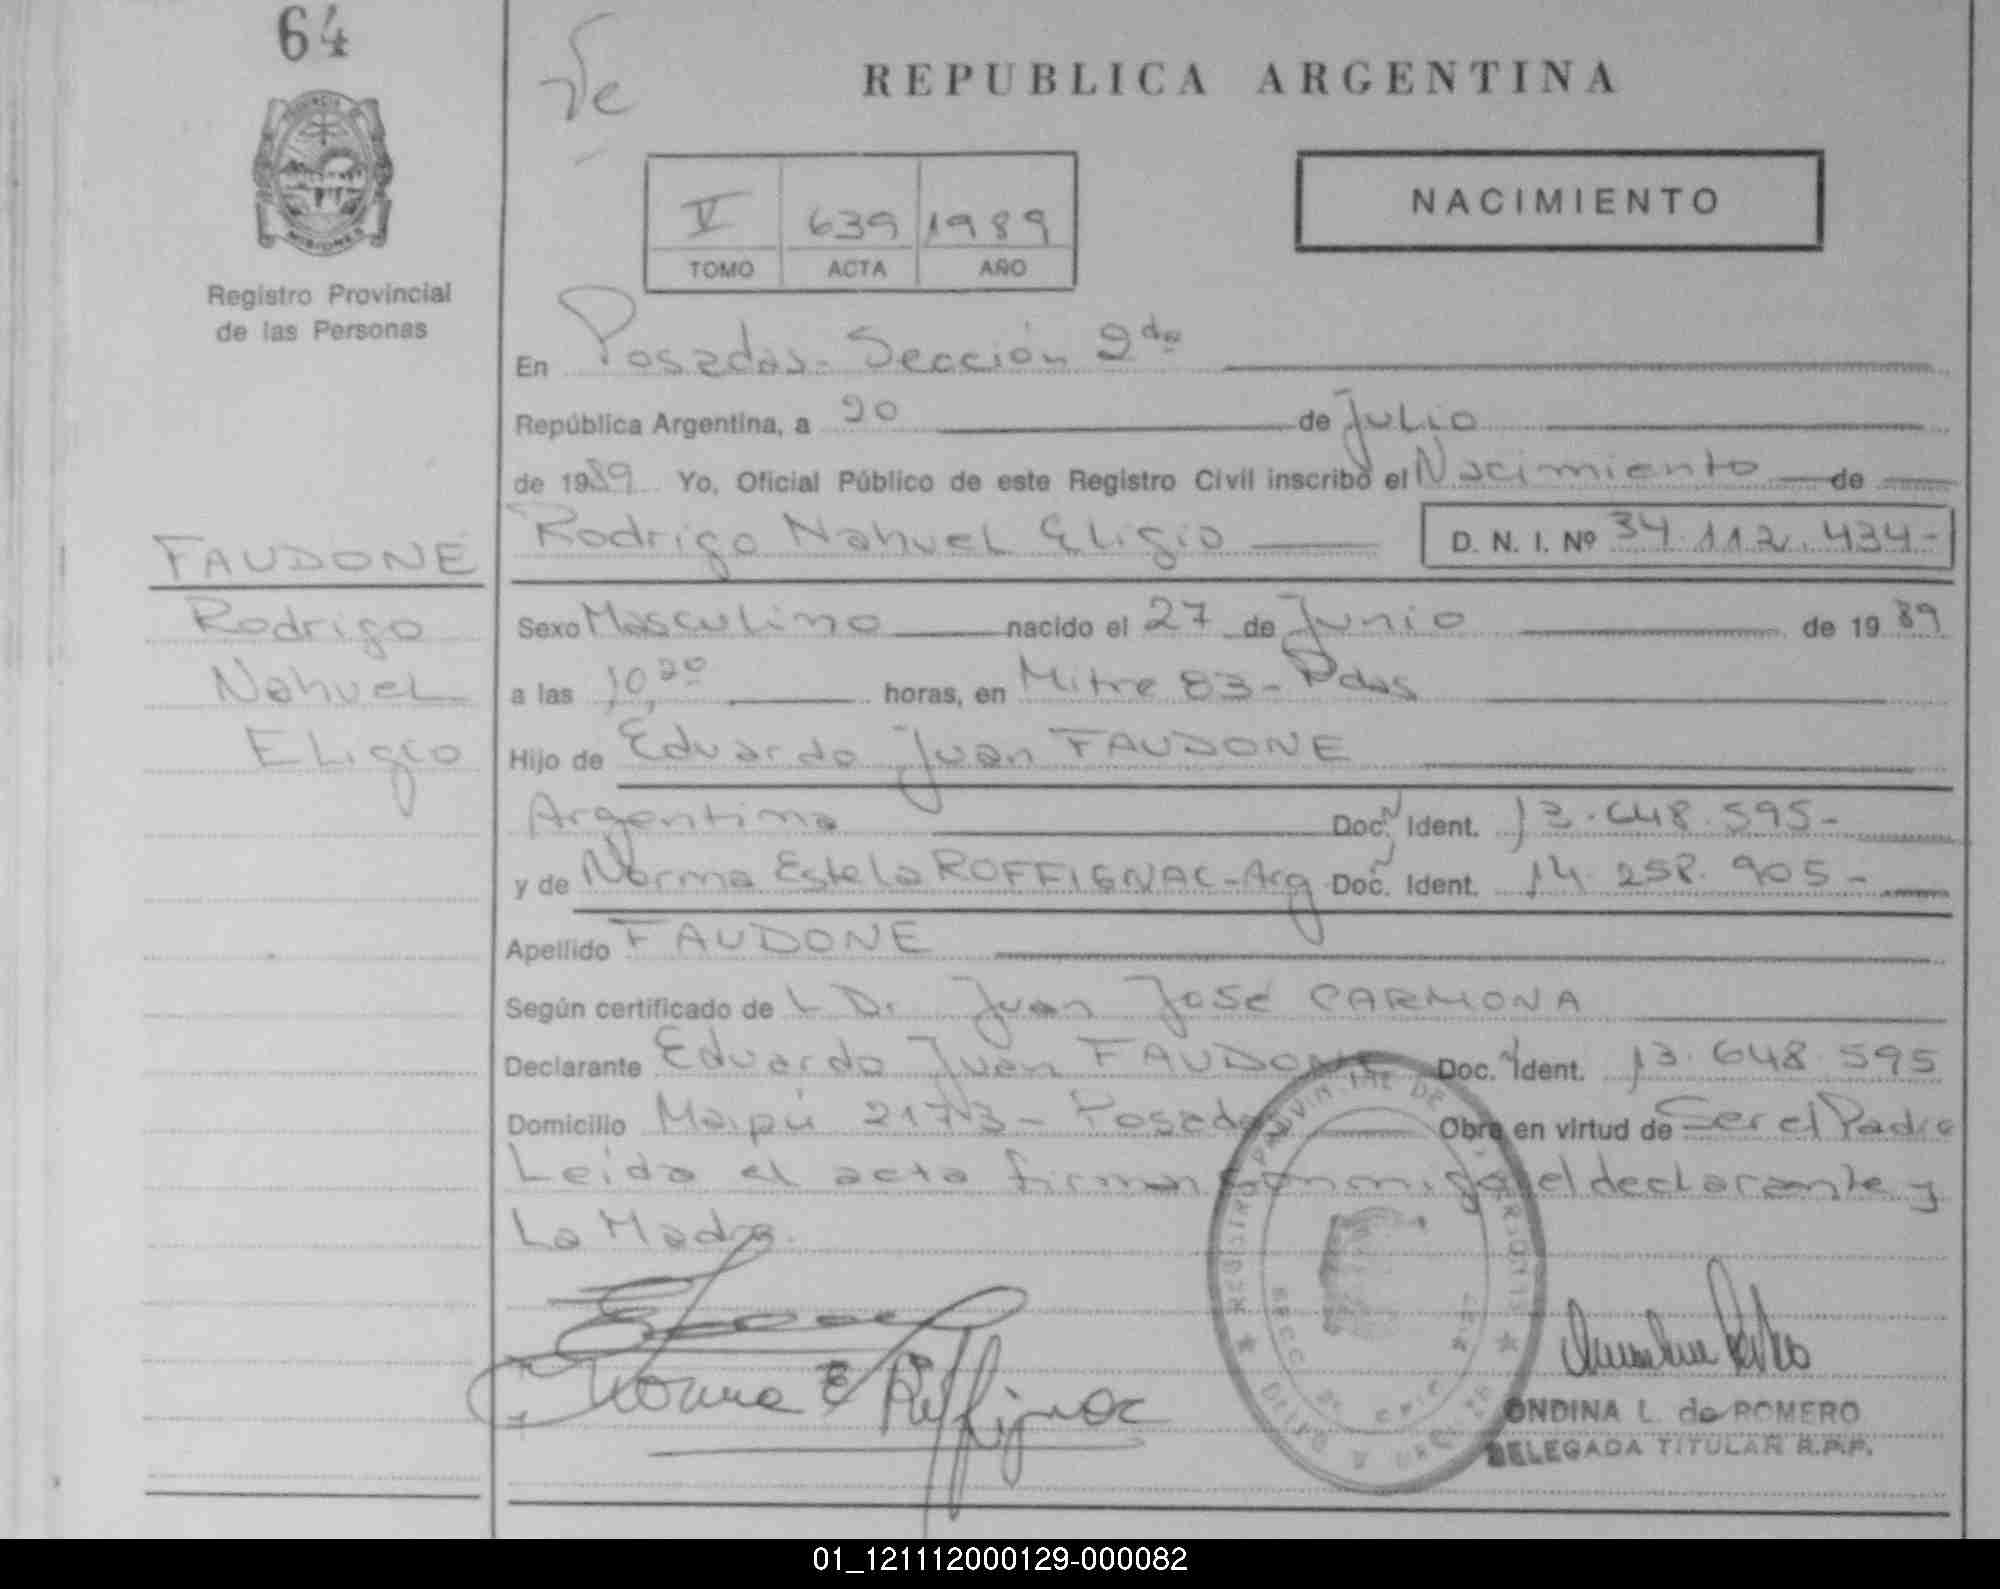 64
MISIONES
Registro Provincial
de las Personas
FAUDONE
Rodrigo
Nahuel
Eligio
REPUBLICA ARGENTINA
NACIMIENTO
V 639 1989
TOMO ACTA AÑO
En Posadas - Sección 2da
República Argentina, a 20 de Julio
de 1989 Yo, Oficial Público de este Registro Civil inscribo el Nacimiento de
Rodrigo Nahuel Eligio D. N. I. Nº 34.112.434-
Sexo Masculino nacido el 27 de Junio de 1989
a las 10,20 horas, en Mitre 83 - Pdas
Hijo de Eduardo Juan FAUDONE
Argentino Doc. Ident. 13.648.595-
y de Norma Estela ROFFIGNAC - Arg Doc. Ident. 14.258.905-
Apellido FAUDONE
Según certificado de L Dr. Juan José CARMONA
Declarante Eduardo Juan FAUDONE Doc. Ident. 13.648.595
Domicilio Maipú 2173 - Posadas Obra en virtud de Ser el Padre
Leída el acta firman conmigo el declarante y
La Madre.
Norma E Roffignac
ONDINA L. de ROMERO
DELEGADA TITULAR R.P.P.
01_121112000129-000082